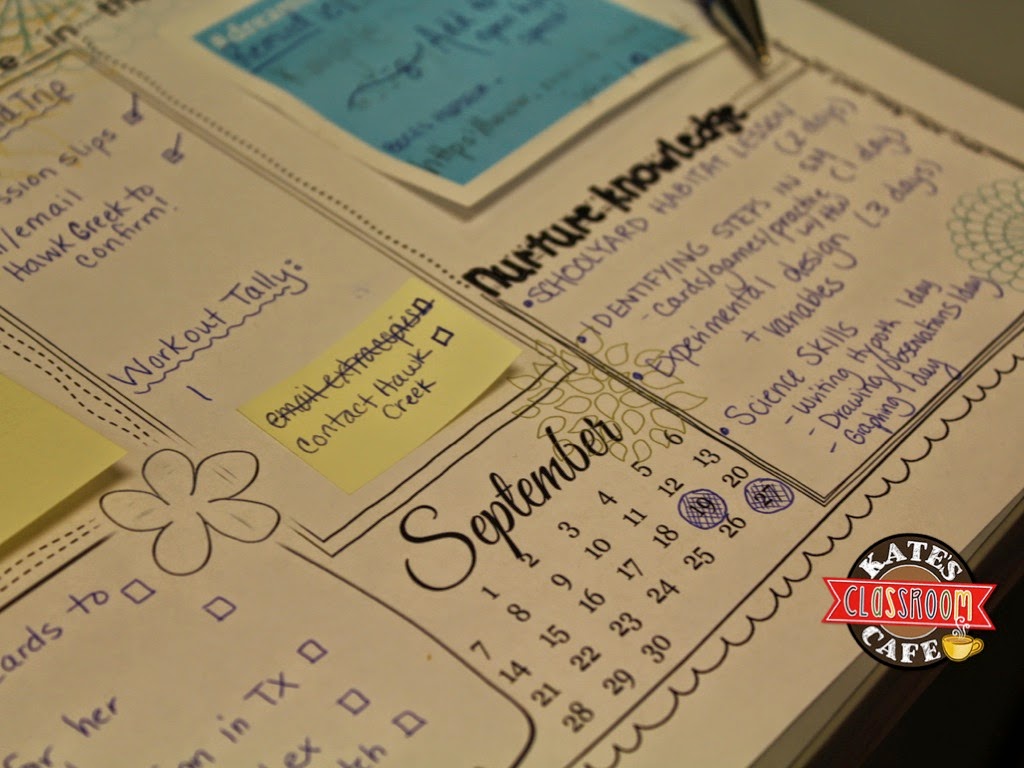 Trip
ssion slips
/email
Hawk Creek to
confirm!
Workout Tally:
1
email extra copies
Contact Hawk
Creek
Add
nurture knowledge
• SCHOOLYARD HABITAT LESSON
• IDENTIFYING STEPS IN SM (2 days)
- Cards/games/practice (1 day)
w/HW
• Experimental design (3 days)
+ variables
• Science Skills
- Writing Hypoth 1day
- Drawing/Observations 1day
- Graphing 1 day
September
1 2 3 4 5 6
7 8 9 10 11 12 13
14 15 16 17 18 19 20
21 22 23 24 25 26 27
28 29 30
ards to
her
on in TX
KATE'S
CLASSROOM
CAFE